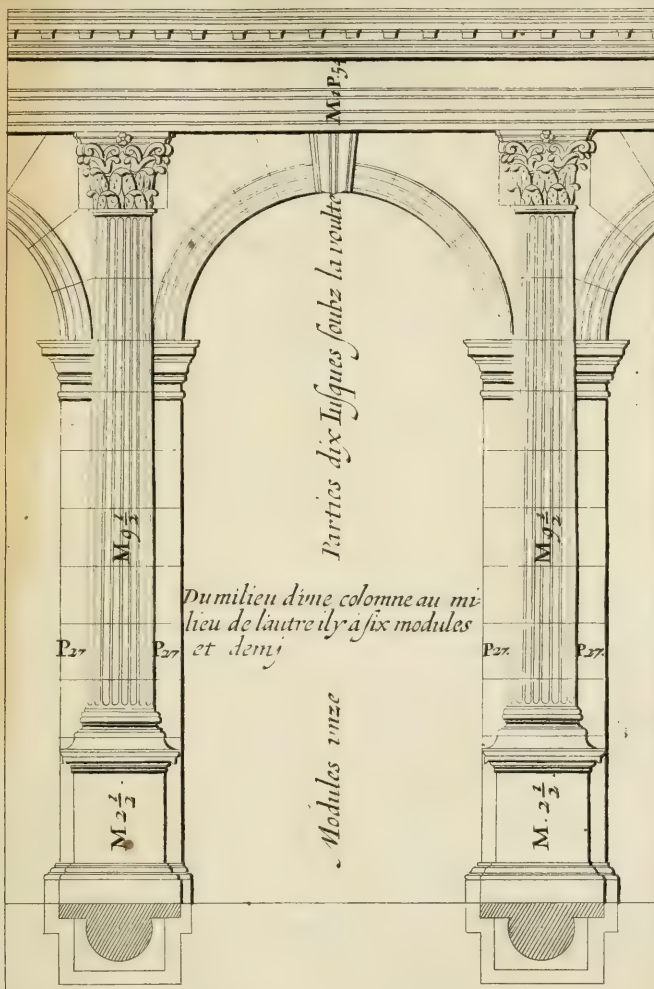 M1P.54
Parties dix Iusques soubz la voulte
M 9 1/2
M 9 1/2
Du milieu d'une colomne au mi-
lieu de l'autre il y à six modules
et demj
P.27
P.27
P.27.
P.27.
Modules unze
M 2 1/2.
M. 2 1/2.